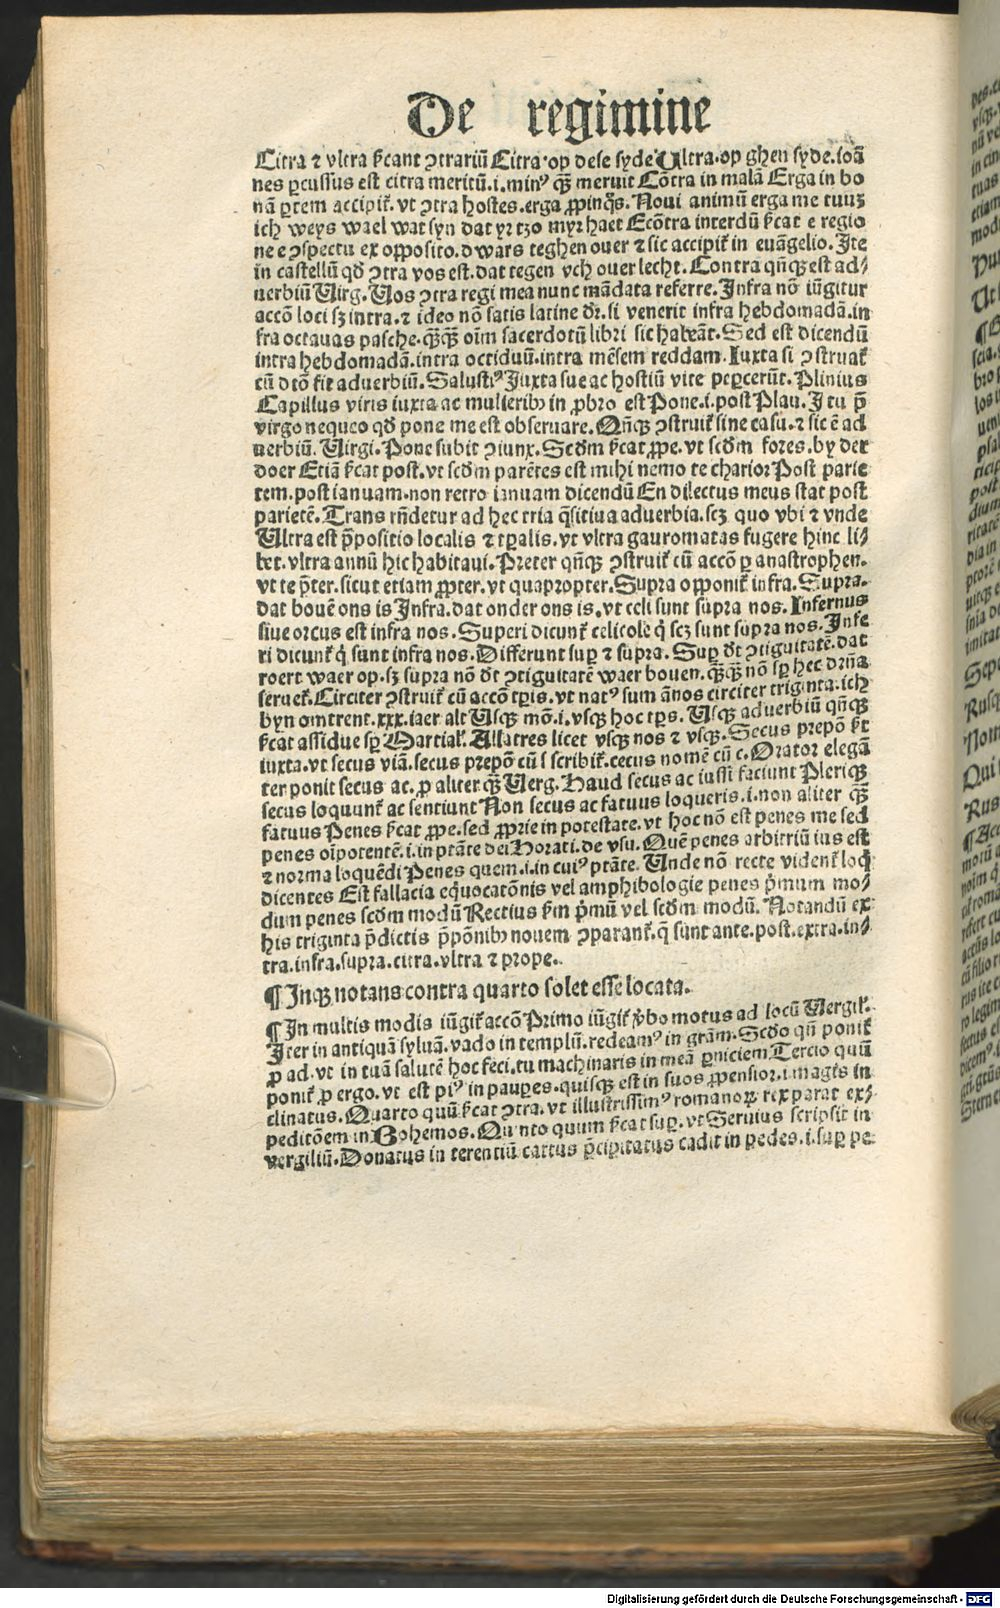 De regimine
Citra ⁊ vltra ſicant ↄtrariū Citra·op deſe ſyde Ultra·op ghen ſyde.ioā
nes ꝑcuſſus eſt citra meritū.i.minꝰ qꝫ meruit Cōtra in malā Erga in bo
nā ꝑtem accipit̄. vt ↄtra hoſtes.erga ꝓpinq̄s. Noui animū erga me tuuꝫ
ich weys wael wat ſyn dat yr tzo myr haet Ecōtra interdū ſicat e regio
ne e ↄſpectu ex oppoſito.dwars teghen ouer ⁊ ſic accipit̄ in euāgelio. Ite
in caſtellū qd̄ ↄtra vos eſt.dat tegen vch ouer lecht. Contra qn̄qꝫ eſt ad⸗
uerbiū Uirg. Uos ↄtra regi mea nunc mādata referre. Infra nō iūgitur
accō loci ſꝫ intra.⁊ ideo nō ſatis latine dr̄.ſi venerit infra hebdomadā.in
fra octauas paſche.qꝫqꝫ oīm ſacerdotū libri ſic habeāt. Sed eſt dicendū
intra hebdomadā.intra octiduū.intra mēſem reddam. Iuxta ſi ↄſtruat̄
cū dtō fit aduerbiū. Saluſtiꝰ Juxta ſue ac hoſtiū vite peꝑcerūt. Plinius
Capillus viris iuxta ac mulieribꝫ in ꝓbro eſt Pone.i.poſt Plau. J tu p̄
virgo nequeo qd̄ pone me eſt obſeruare. Qn̄qꝫ ↄſtruit̄ ſine caſu.⁊ ſic ē ad
uerbiū. Uirgi. Pone ſubit ↄiunx. Scd̄m ſicat ꝓpe. vt ſcd̄m fores. by der
doer Etiā ſicat poſt. vt ſcd̄m parētes eſt mihi nemo te charior Poſt parie
tem.poſt ianuam.non retro ianuam dicendū En dilectus meus ſtat poſt
parietē. Trans rn̄detur ad hec tria q̄ſitiua aduerbia.ſcꝫ quo vbi ⁊ vnde
Ultra eſt p̄poſitio localis ⁊ tꝑalis. vt vltra gauromatas fugere hinc li⸗
bet. vltra annū hic habitaui. Preter qn̄qꝫ ↄſtruit̄ cū accō ꝑ anaſtrophen.
vt te p̄ter. ſicut etiam ꝓpter. vt quapropter. Supra opponit̄ infra. Supra.
dat bouē ons is Infra.dat onder ons is. vt celi ſunt ſupra nos. Infernus
ſiue orcus eſt infra nos. Superi dicunt̄ celicole q̄ ſcꝫ ſunt ſupra nos. Infe
ri dicunt̄ q̄ ſunt infra nos. Differunt ſuꝑ ⁊ ſupra. Suꝑ dt̄ ↄtiguitatē.dat
roert waer op.ſꝫ ſupra nō dt̄ ↄtiguitatē waer bouen. qꝫqꝫ nō ſꝑ hec dr̄na
ſeruet̄. Circiter ↄſtruit̄ cū accō tꝑis. vt natꝰ ſum ānos circiter triginta. ich
byn omtrent.xxx.iaer alt Uſqꝫ mō.i.vſqꝫ hoc tꝑs. Uſqꝫ aduerbiū qn̄qꝫ
ſicat aſſidue ſꝑ Martial̄. Allatres licet vſqꝫ nos ⁊ vſqꝫ. Secus prepō ſt̄
iuxta. vt ſecus viā. ſecus prepō cū ſ ſcribit̄. cecus nomē cū c. Orator elegā
ter ponit ſecus ac. ꝓ aliter qꝫ Uerg. Haud ſecus ac iuſſi faciunt Pleriqꝫ
ſecus loquunt̄ ac ſentiunt Non ſecus ac fatuus loqueris.i.non aliter qꝫ
fatuus Penes ſicat ꝓpe. ſed ꝓprie in poteſtate. vt hoc nō eſt penes me ſed
penes oīpotentē.i.in ptāte dei Horati. de vſu. Quē penes arbitriū ius eſt
⁊ norma loquēdi Penes quem.i.in cuiꝰ ptāte. Unde nō recte vident̄ loq̄
dicentes Eſt fallacia eq̄uocatōnis vel amphibologie penes p̄mum mo⸗
dum penes ſcd̄m modū Rectius ſm̄ p̄mū vel ſcd̄m modū. Notandū ex
his triginta p̄dictis p̄pōnibꝫ nouem ↄparant̄.q̄ ſunt ante.poſt.extra.in⸗
tra.infra.ſupra.citra.vltra ⁊ prope.
¶ Inqꝫ notans contra quarto ſolet eſſe locata.
¶ In multis modis iūgit̄ accō Primo iūgit̄ ꝟbo motus ad locū Uergil̄.
Iter in antiquā ſyluā.vado in templū.redeamꝰ in grām. Scd̄o qn̄ ponit̄
ꝓ ad. vt in tuā ſalutē hoc feci.tu machinaris in meā ꝑniciem Tercio quū
ponit̄ ꝓ ergo. vt eſt piꝰ in pauꝑes.quiſqꝫ eſt in ſuos ꝓpenſior.i.magis in
clinatus. Quarto quū ſicat ↄtra. vt illuſtriſſimꝰ romanoꝝ rex parat ex⸗
peditōem in Bohemos. Quinto quum ſicat ſuꝑ. vt Seruius ſcripſit in
vergiliū. Donatus in terentiū cattus p̄cipitatus cadit in pedes.i.ſuꝑ pe
Digitalisierung gefördert durch die Deutsche Forschungsgemeinschaft - DFG